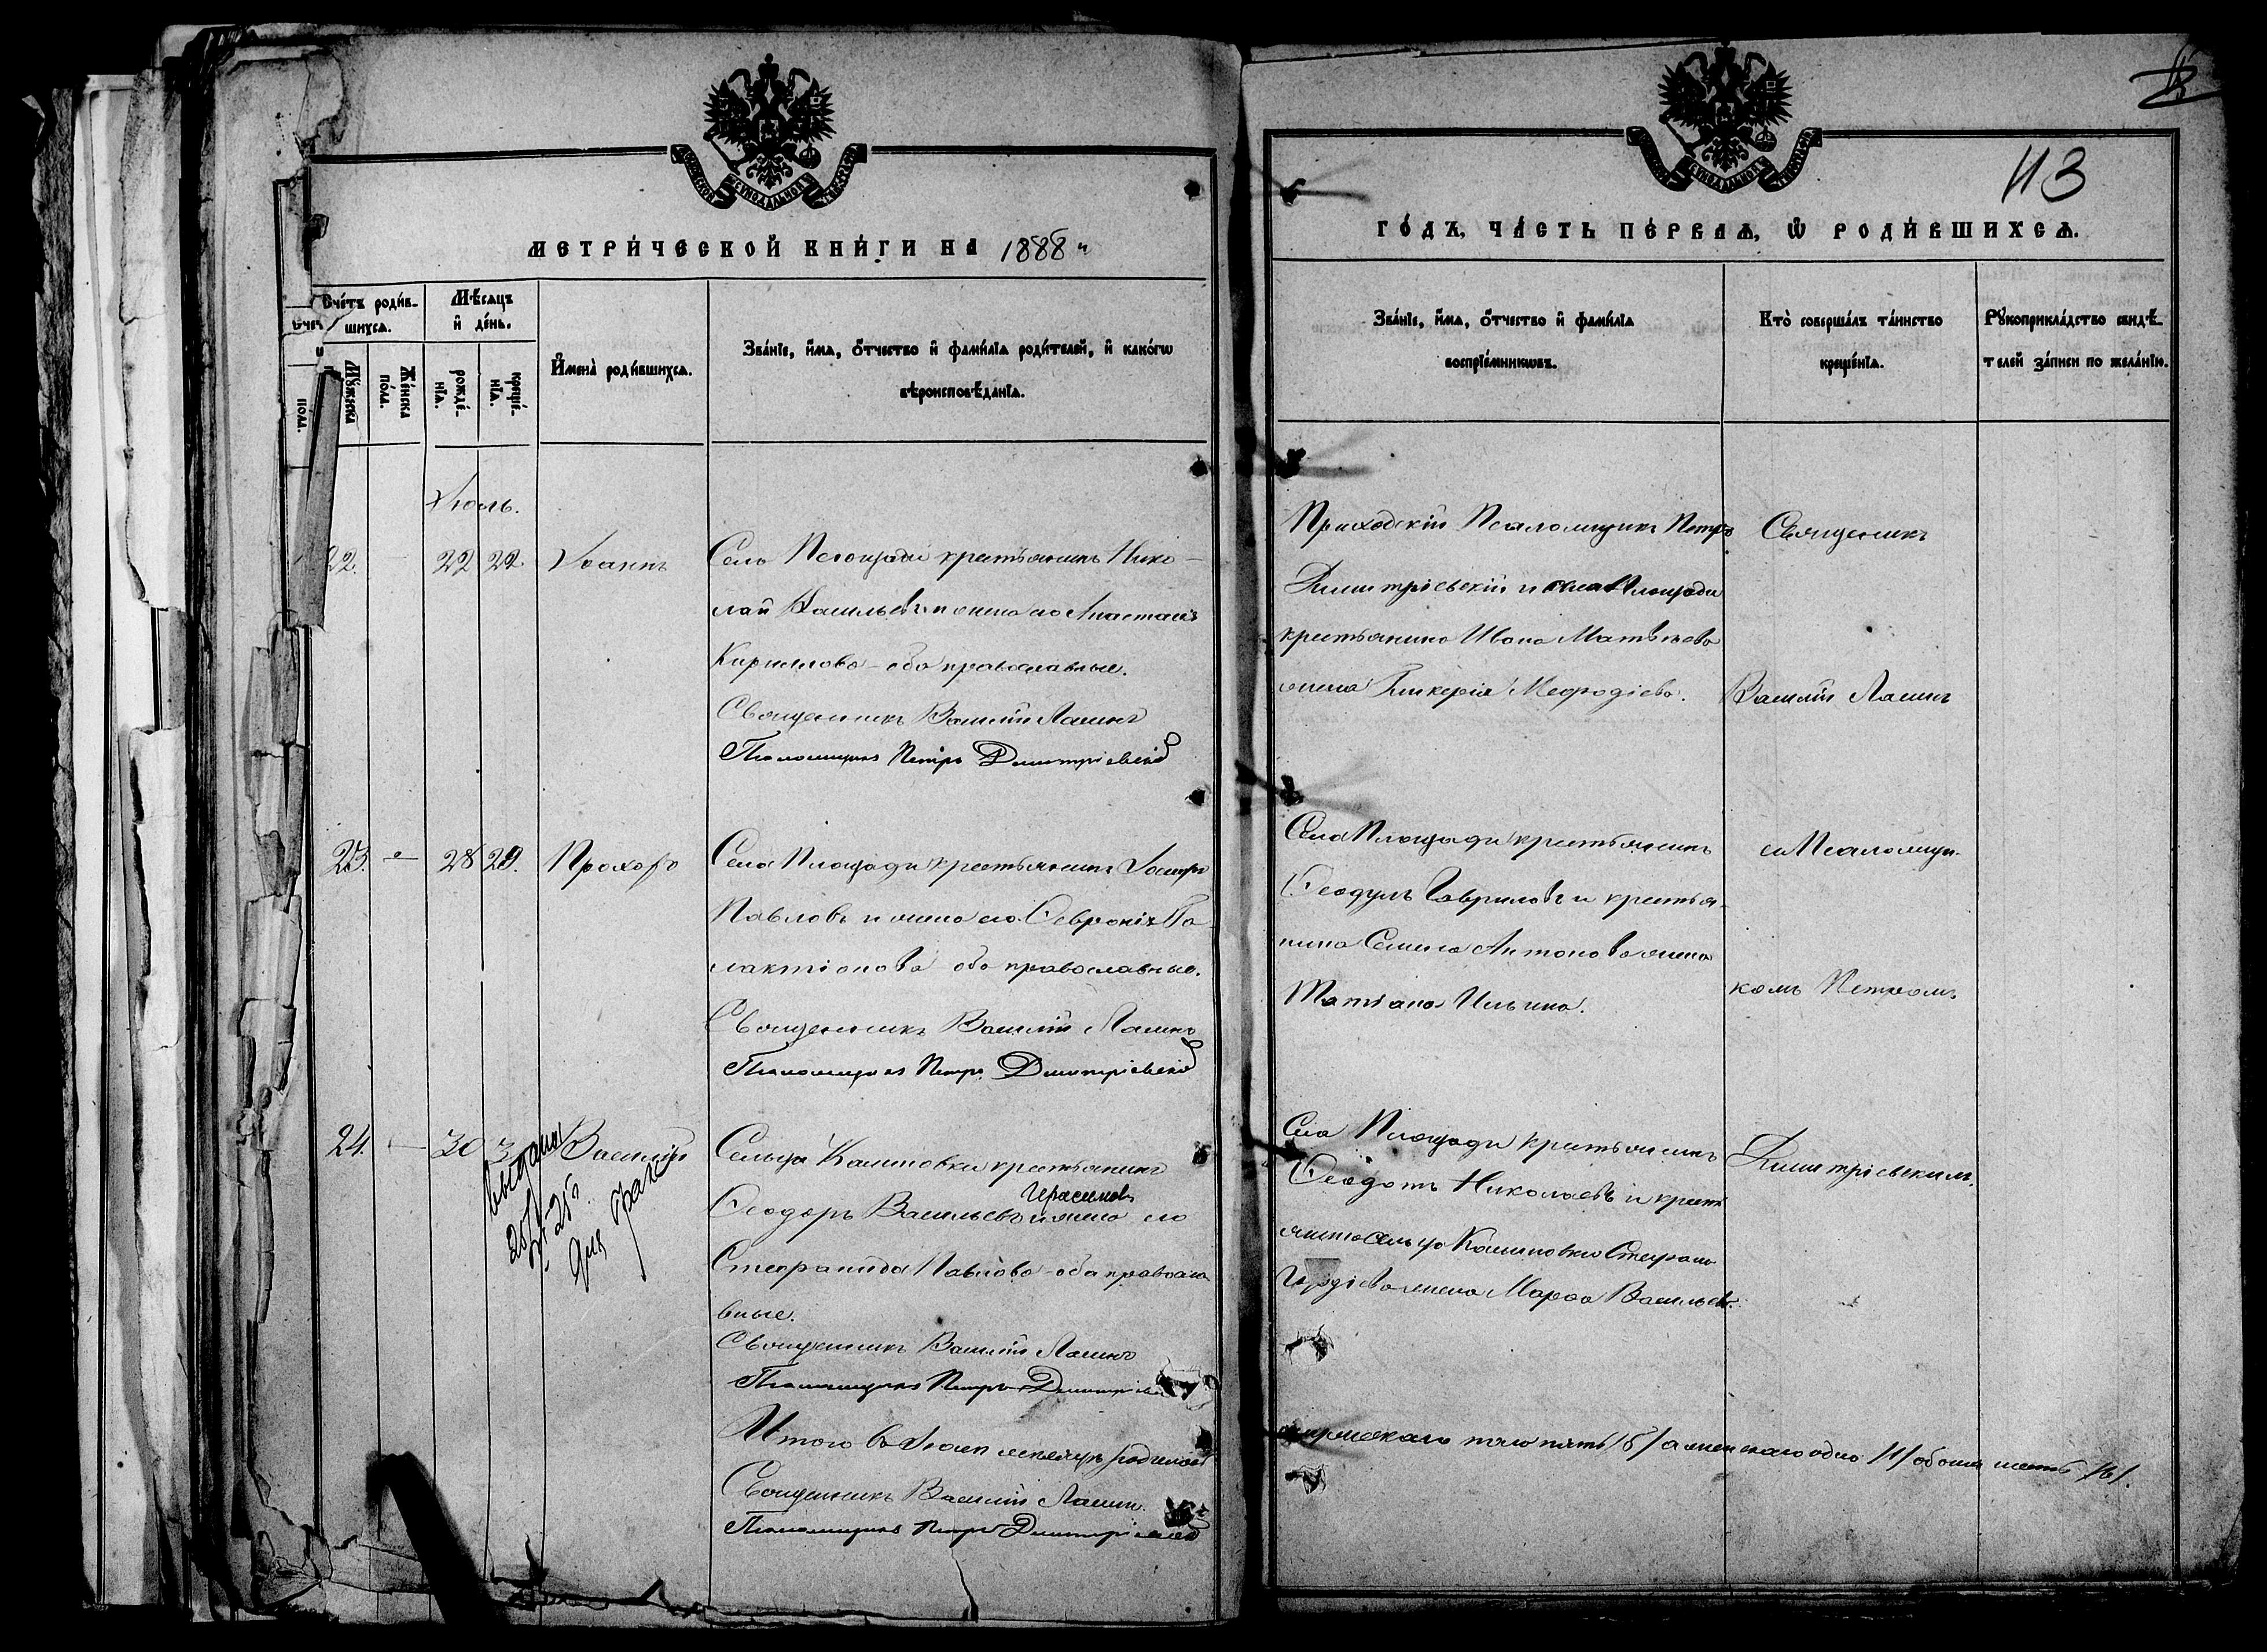 МОСКОВСКОЙ СУНОДАЛЬНОЙ ТИПОГРАФІИ
МЕТРИ́ЧЕСКОЙ КНИ́ГИ НА 1888 й
Сче́тъ роди́в-
шихся.
Му́жеска
Же́нска
по́ла.
Мѣ́сяцъ
и҆ де́нь.
рожде́-
нїѧ.
креще́-
нїѧ.
И҆мена̀ роди́вшихся.
Зва́нїе, и҆́мѧ, ѻ҆́тчество и҆ фами́лїѧ роди́телей, и҆ како́гѡ
вѣроисповѣ́данїѧ.
Іюль.
22. — 22 22 Іоаннъ
Села Площади крестьянинъ Нико-
лай Васильевъ и жена его Анастасія
Кириллова – оба православные.
Священникъ Василій Лашинъ
Псаломщикъ Петръ Димитріевскій
23. — 28 29. Прохоръ
Села Площади крестьянинъ Іосифъ
Павловъ и жена его Ѳевронія Га-
лактіонова оба православные.
Священникъ Василій Лашинъ
Псаломщикъ Петръ Димитріевскій
24. — 30 Василій
выдана
для брака
Сельца Калиновки крестьянинъ
Герасимовъ
Ѳеодоръ Васильевъ и жена его
Стефанида Павлова – оба правосла-
вные.
Священникъ Василій Лашинъ
Псаломщикъ Петръ Димитріевскій
Итого въ Іюлѣ мѣсяцѣ родилось
Священникъ Василій Лашинъ
Псаломщикъ Петръ Димитріевскій
СУНОДАЛЬНОЙ
113
ГО́ДЪ, ЧА́СТЬ ПЕ́РВАѦ, Ѡ РОДИ́ВШИХСѦ.
Зва́нїе, и҆́мѧ, ѻ҆́тчество и҆ фами́лїѧ
воспрїе́мникѡвъ.
Кто̀ соверша́лъ та́инство
креще́нїѧ.
Рꙋкоприкла́дство свидѣ́-
телей за́писи по жела́нїю.
Приходскій Псаломщикъ Петръ
Димитріевскій и села Площади
крестьянина Ивана Матвѣева
жена Гликерія Меѳодіева.
Священникъ
Василій Лашинъ
Села Площади крестьянинъ
Ѳеодулъ Гавриловъ и крестья-
нина Семена Антонова жена
Татіана Ильина.
съ Псаломщи-
комъ Петромъ
Села Площади крестьянинъ
Ѳеодотъ Николаевъ и кресть
янина сельца Калиновки Стефана
Гордіева жена Марѳа Васильев.
Димитріевскимъ.
мужескаго пола пять /5/ а женскаго одно /1/ обоего шесть /6/.